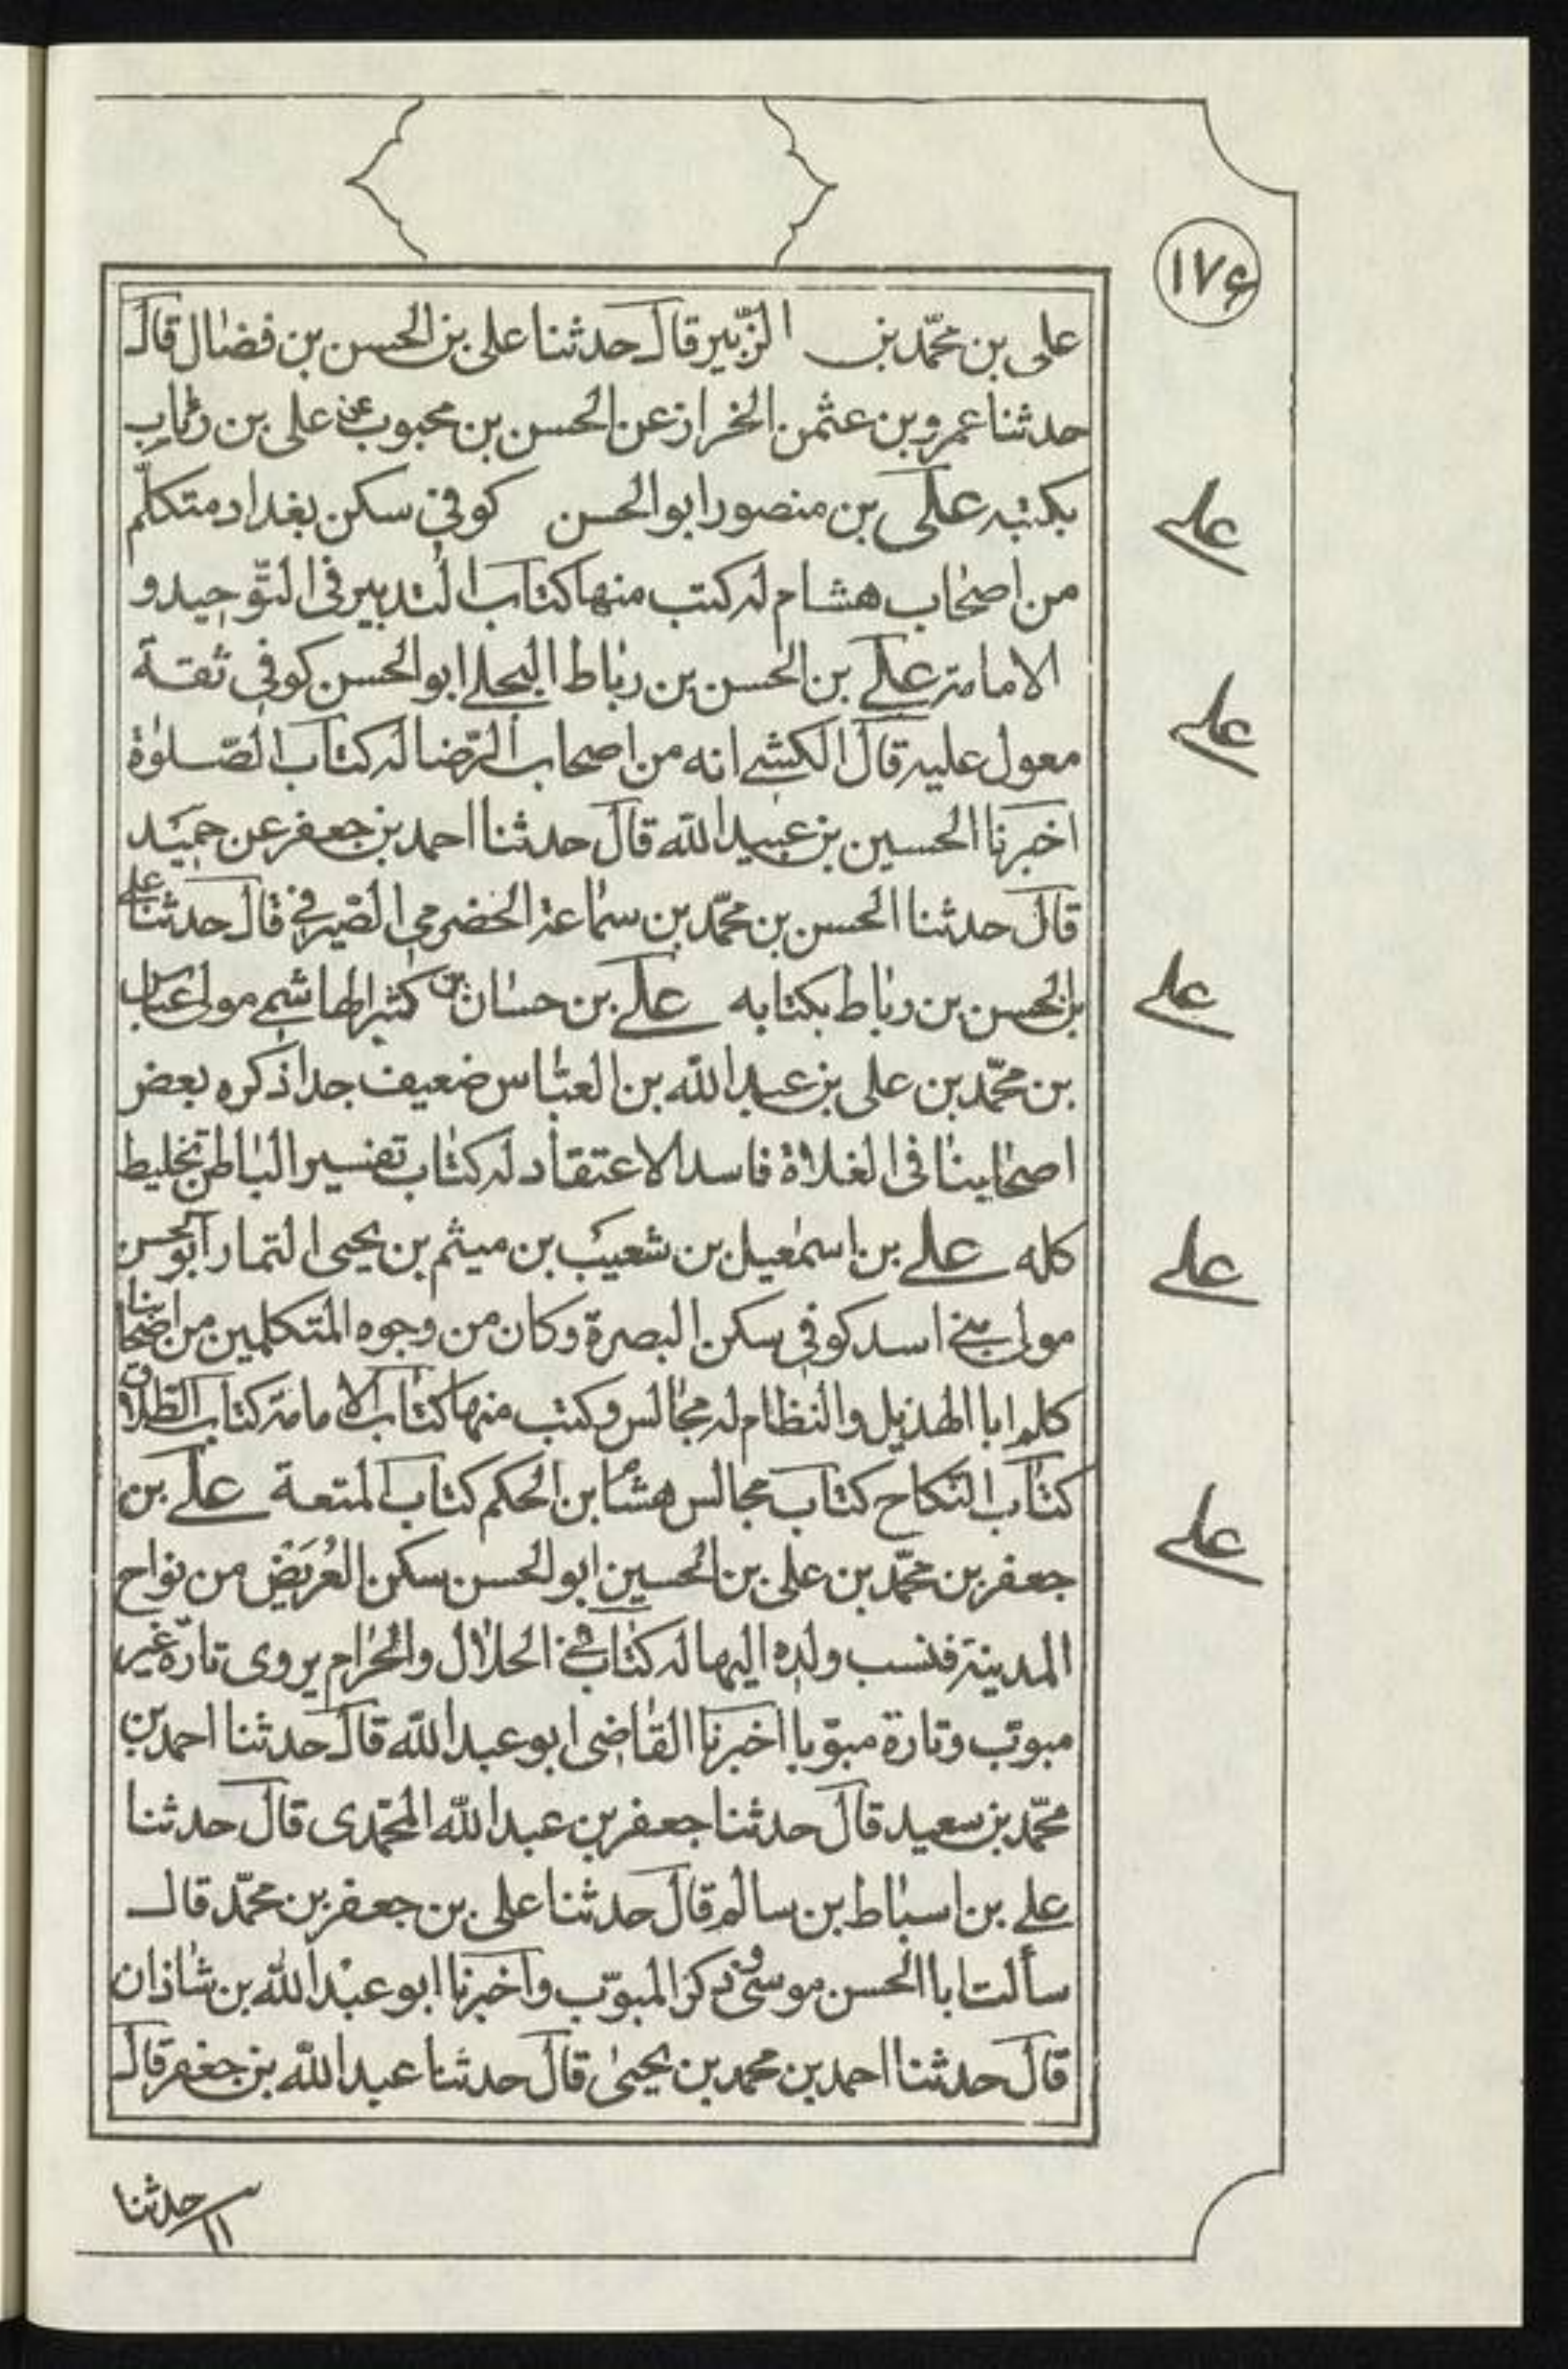 ١٧۶
على بن محمّد بن الزّبير قال حدثنا على بن الحسن بن فضال قال
حدثنا عمرو بن عثمن الخراز عن الحسن بن محبوب عن على بن رئاب
بكتبه على بن منصور ابو الحسن كوفى سكن بغداد متكلّم
علے
من اصحاب هشام له كتب منها كتاب التدبير فى التّوحيد و
الامامة علے بن الحسن بن رباط البجلے ابو الحسن كوفى ثقة
علے
معول عليه قال الكشے انه من اصحاب الرّضا له كتاب الصّلوة
اخبرنا الحسين بن عبيد الله قال حدثنا احمد بن جعفر عن حميد
قال حدثنا الحسن بن محمّد بن سماعة الحضرمى الصّيرفے قال حدثنا علے
بن الحسن بن رباط بكتابه علے بن حسان بن كثير الهاشمے مولى عباس
علے
بن محمّد بن على بن عبد الله بن العبّاس ضعيف جدا ذكره بعض
اصحابنا فى الغلاة فاسد الاعتقاد له كتاب تفسير الباطن تخليط
كله علے بن اسمعيل بن شعيب بن ميثم بن يحيى التمار ابو الحسن
علے
مولى بنے اسد كوفى سكن البصرة وكان من وجوه المتكلمين من اصحابنا
كلم ابا الهذيل والنظام له مجالس وكتب منها كتاب الامامة كتاب الطلاق
كتاب النكاح كتاب مجالس هشام بن الحكم كتاب المتعة علے بن
علے
جعفر بن محمّد بن على بن الحسين ابو الحسن سكن العُرَيض من نواحى
المدينة فنسب ولده اليها له كتاب فے الحلال والحرام يروى تارة غير
مبوّب وتارة مبوّبا اخبرنا القاضى ابو عبد الله قال حدثنا احمد بن
محمّد بن سعيد قال حدثنا جعفر بن عبد الله المحمّدى قال حدثنا
علے بن اسباط بن سالم قال حدثنا على بن جعفر بن محمّد قال
سألت ابا الحسن موسى وذكر المبوّب واخبرنا ابو عبد الله بن شاذان
قال حدثنا احمد بن محمد بن يحيى قال حدثنا عبد الله بن جعفر قال
حدثنا